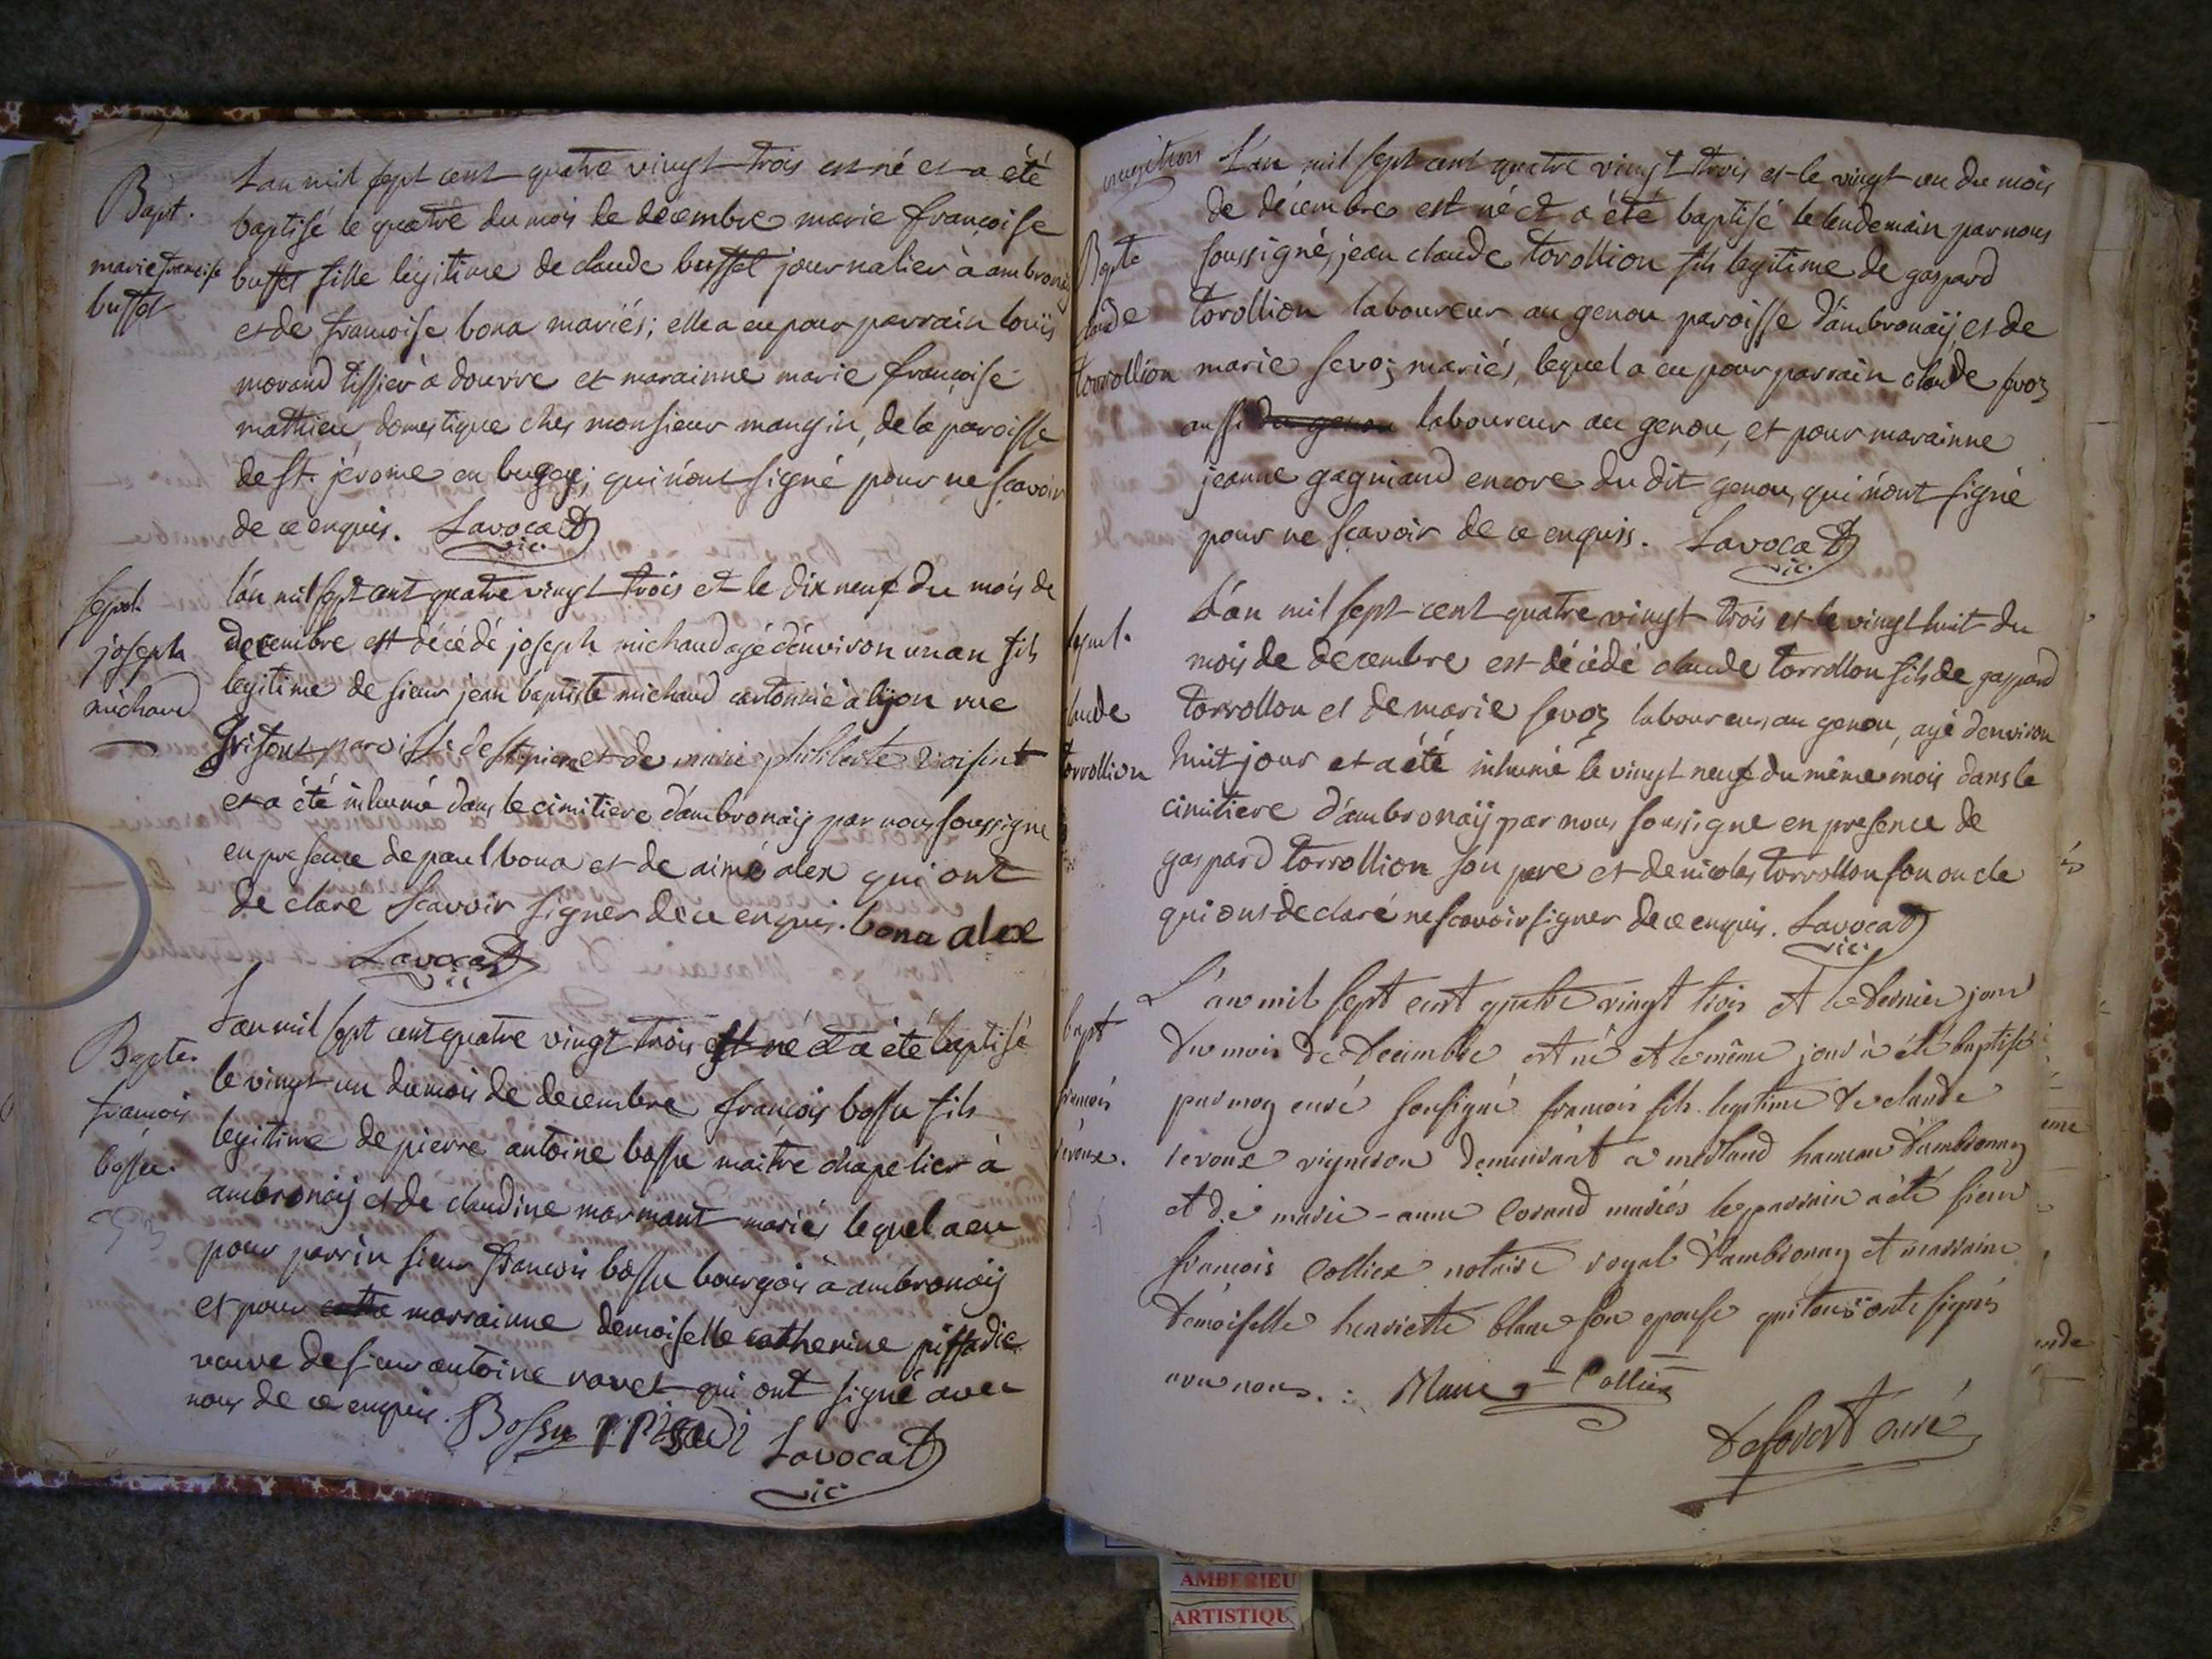 Bapt.
marie francoise
buffet
L'an mil sept cent quatre vingt trois est né et a été
baptisé le quatre du mois de décembre marie françoise
buffet fille légitime de claude buffet journalier à ambronaÿ
et de francoise bona mariés; elle a eu pour parrain louis
morand tissier à douvre et marainne marie françoise
mathieu, domestique ches monsieur mangin, de la paroisse
de St. jérome en bugey; qui n'ont signé pour ne scavoir
de ce enquis. Lavocat
vic.
sepul.
joseph
michaud
l'an mil sept cent quatre vingt trois et le dix neuf du mois de
decembre est décédé joseph michaud agé d'environ un an fils
legitime de sieur jean baptiste michaud cartonnié à lyon rue
paroisse de St pierre et de marie philiberte
et a été inhumé dans le cimitiere d'ambronaÿ par nous soussigne
en presence de paul bona et de aimé alex qui ont
de claré scavoir signer de ce enquis. bona alex
Lavocat
vic
Bapte.
francois
bossu.
L'an mil sept cent quatre vingt trois est né et a été baptisé
le vingt un du mois de decembre françois bossu fils
legitime de pierre antoine bossu maitre chapelier à
ambronaÿ et de claudine marmant mariés lequel a eu
pour parrin sieur francois bossu bourgois à ambronaÿ
et pour marrainne demoiselle catherine pissadie
veuve de sieur antoine ravet qui ont signé avec
nous de ce enquis. Bossu Lavocat
vic
Bapte
claude
torrollion
L'an mil sept cent quatre vingt trois et le vingt un du mois
de décembre est né et a été baptisé le lendemain par nous
soussigné, jean claude torollion fils legitime de gaspard
torollion laboureur au genou paroisse d'ambronaÿ, et de
marie sevoz mariés, lequel a eu pour parrain claude sevoz
aussi du genou laboureur au genou, et pour marainne
jeanne gagniand encore du dit genou, qui n'ont signé
pour ne scavoir de ce enquis. Lavocat
vic.
sepul.
claude
torrollion
L'an mil sept cent quatre vingt trois et le vingt huit du
mois de decembre est décédé claude torrollon fils de gaspard
torrollon et de marie sevoz laboureurs au genou, agé d'environ
huit jour et a été inhumé le vingt neuf du même mois dans le
cimitiere d'ambronaÿ par nous soussigne en presence de
gaspard torrollion son pere et de nicolas torrollon son oncle
qui ont declaré ne scavoir signer de ce enquis. Lavocat
vic.
bapt
francois
L'an mil sept cent quatre vingt trois et le dernier jour
du mois de decembre est né et le même jour à été baptisé
par moy curé sousigné francois fils legitime de claude
vigneron demeurant a merland hameau d'ambronay
et de marie-anne mariés le parrain a été sieur
francois Colliex notaire royal d'ambronay et marraine
demoiselle henriette blanc son epouse qui tous ont signés
avec nous. Colliex
curé
AMBERIEU
ARTISTIQUE